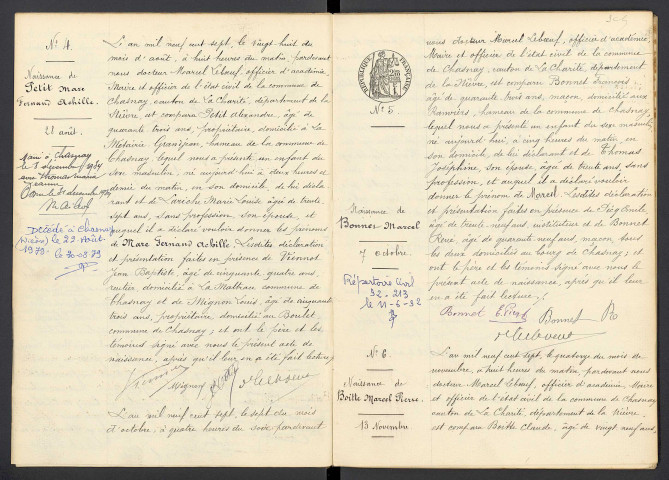 N° 4.
Naissance de
Petit Marc
Fernand Achille.
28 août.
Marié à Chasnay
le 5 décembre 1934
avec Thomas Maria
Jeanne
Décédé à Chasnay
(Nièvre) le 29 Août
1979.
le 30-08-79
L'an mil neuf cent sept, le vingt-huit du
mois d'août, à huit heures du matin, pardevant
nous docteur Marcel Lebœuf, officier d'académie,
Maire et officier de l'état civil de la commune de
Chasnay, canton de La Charité, département de la
Nièvre, est comparu Petit Alexandre, âgé de
quarante trois ans, propriétaire, domicilié à La
Métairie hameau de la commune de
Chasnay, lequel nous a présenté un enfant du sexe
masculin, né aujourd'hui, à deux heures et
demie du matin, en son domicile, de lui décla
rant et de Lariche Marie Louise, âgée de trente
sept ans, sans profession, son épouse, et
auquel il a déclaré vouloir donner les prénoms
de Marc Fernand Achille. Lesdites déclaration
et présentation faites en présence de Vionnet
Jean Baptiste, âgé de cinquante quatre ans,
rentier, domicilié à La commune de
Chasnay et de Mignon Louis, âgé de cinquante
trois ans, propriétaire, domicilié au Boulet,
commune de Chasnay; et ont le père et les
témoins signé avec nous le présent acte de
naissance, après qu'il leur en a été fait lecture.
Vionnet Mignon Petit Dr Lebœuf
L'an mil neuf cent sept, le sept du mois
d'octobre, à quatre heures du soir, pardevant
RÉPUBLIQUE FRANÇAISE
N° 5.
Naissance de
Bonnet Marcel
7 octobre.
Répertoire Civil
92-213
le 11-6-92
nous docteur Marcel Lebœuf, officier d'académie,
Maire et officier de l'état civil de la commune
de Chasnay, canton de La Charité, département
de la Nièvre, est comparu Bonnet François,
âgé de quarante trois ans, maçon, domicilié aux
hameau de la commune de Chasnay,
lequel nous a présenté un enfant du sexe masculin,
né aujourd'hui, à cinq heures du matin, en
son domicile, de lui déclarant et de Thomas
Joséphine, son épouse, âgée de trente ans, sans
profession, et auquel il a déclaré vouloir
donner le prénom de Marcel. Lesdites déclaration
et présentation faites en présence de Picq Émile,
âgé de trente neuf ans, instituteur et de Bonnet
René, âgé de quarante neuf ans, maçon, tous
les deux domiciliés au bourg de Chasnay; et
ont le père et les témoins signé avec nous le
présent acte de naissance, après qu'il leur
en a été fait lecture.
Bonnet E. Picq Bonnet
Dr Lebœuf
N° 6.
Naissance de
Boitte Marcel Pierre.
13 Novembre
L'an mil neuf cent sept, le quatorze du mois de
novembre, à huit heures du matin, pardevant nous
docteur Marcel Lebœuf, officier d'académie, Maire
et officier de l'état civil de la commune de Chasnay
canton de La Charité, département de la Nièvre,
est comparu Boitte Claude, âgé de vingt neuf ans,